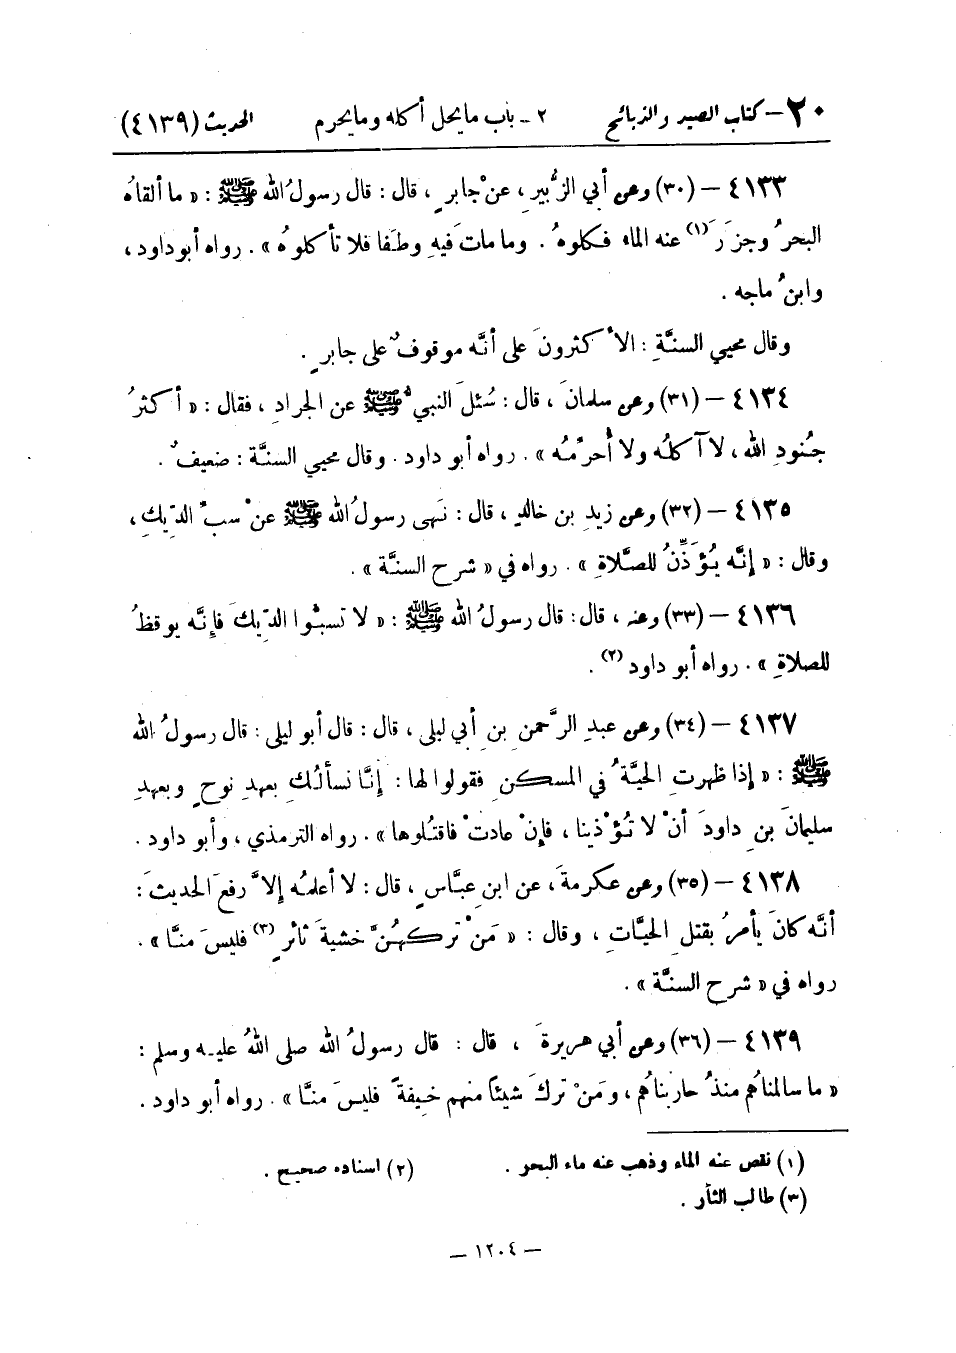 ٢٠ – كتاب الصيد والذبائح ٢ – باب ما يحل أكله وما يحرم الحديث (٤١٣٩)
٤١٣٣ – (٣٠) وعن أبي الزُّبيرِ ، عنْ جابرٍ ، قال : قال رسولُ الله ﷺ : « ما ألقاهُ
البحرُ وجزَرَ (١) عنه الماء فكلوهُ . وما ماتَ فيهِ وطَفا فلا تأكلوهُ » . رواه أبو داود ،
وابنُ ماجه .
وقال محيي السنَّةِ : الأكثرونَ على أنَّه موقوفٌ على جابرٍ .
٤١٣٤ – (٣١) وعن سلمانَ ، قال : سُئلَ النبيُّ ﷺ عن الجرادِ ، فقال : « أكثرُ
جُنودِ الله ، لا آكلُه ولا أُحرِّمُه » . رواه أبو داود . وقال محيي السنَّة : ضعيفٌ .
٤١٣٥ – (٣٢) وعن زيدِ بن خالدٍ ، قال : نَهى رسولُ الله ﷺ عنْ سبِّ الدِّيكِ ،
وقال : « إنَّه يُؤَذِّنُ للصَّلاةِ » . رواه في « شرح السنَّة » .
٤١٣٦ – (٣٣) وعنه ، قال : قال رسولُ الله ﷺ : « لا تسبُّوا الدِّيكَ فإنَّه يوقظُ
للصلاةِ » . رواه أبو داود (٢) .
٤١٣٧ – (٣٤) وعن عبدِ الرَّحمنِ بنِ أبي ليلى ، قال : قال أبو ليلى : قال رسولُ الله
ﷺ : « إذا ظهرتِ الحيَّةُ في المسكنِ فقولوا لها : إنَّا نسألُكِ بعهدِ نوحٍ وبعهدِ
سليمانَ بنِ داودَ أنْ لا تُؤْذينا ، فإنْ عادتْ فاقتُلوها » . رواه الترمذي ، وأبو داود .
٤١٣٨ – (٣٥) وعن عكرمةَ ، عن ابنِ عبَّاسٍ ، قال : لا أعلمُه إلاَّ رفعَ الحديثَ :
أنَّه كانَ يأمرُ بقتلِ الحيَّاتِ ، وقال : « مَنْ تركهُنَّ خشيةَ ثائرٍ (٣) فليسَ منَّا » .
رواه في « شرح السنَّة » .
٤١٣٩ – (٣٦) وعن أبي هريرةَ ، قال : قال رسولُ الله صلى اللهُ عليه وسلم :
« ما سالمناهُم منذُ حاربناهُم ، ومَنْ تركَ شيئاً منهم خيفةً فليسَ منَّا » . رواه أبو داود .
(١) نقص عنه الماء وذهب عنه ماء البحر . (٢) اسناده صحيح .
(٣) طالب الثأر .
– ١٢٠٤ –